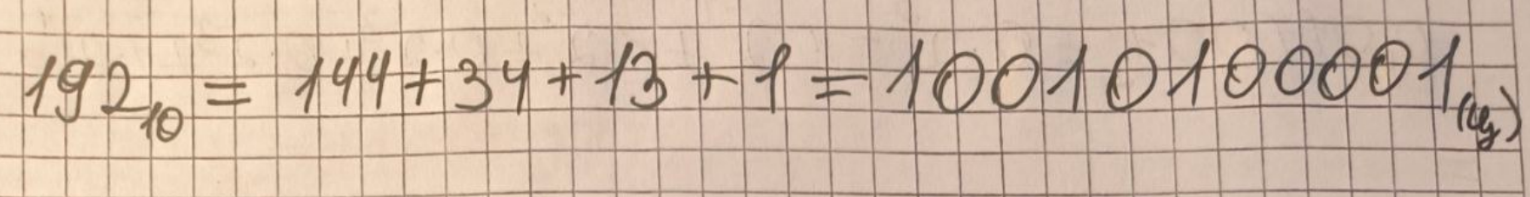 192₁₀ = 144+34+13+1 = 10010100001₍ц₎